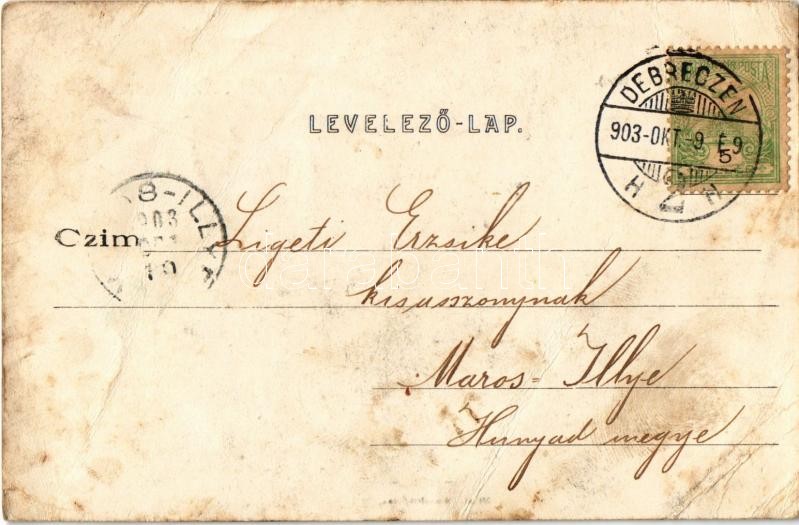 LEVELEZŐ-LAP.
DEBRECZEN
903-OKT-9. É9
5
Czim
Ligeti Erzsike
kisasszonynak
Maros-Illye
Hunyad megye
darabanth